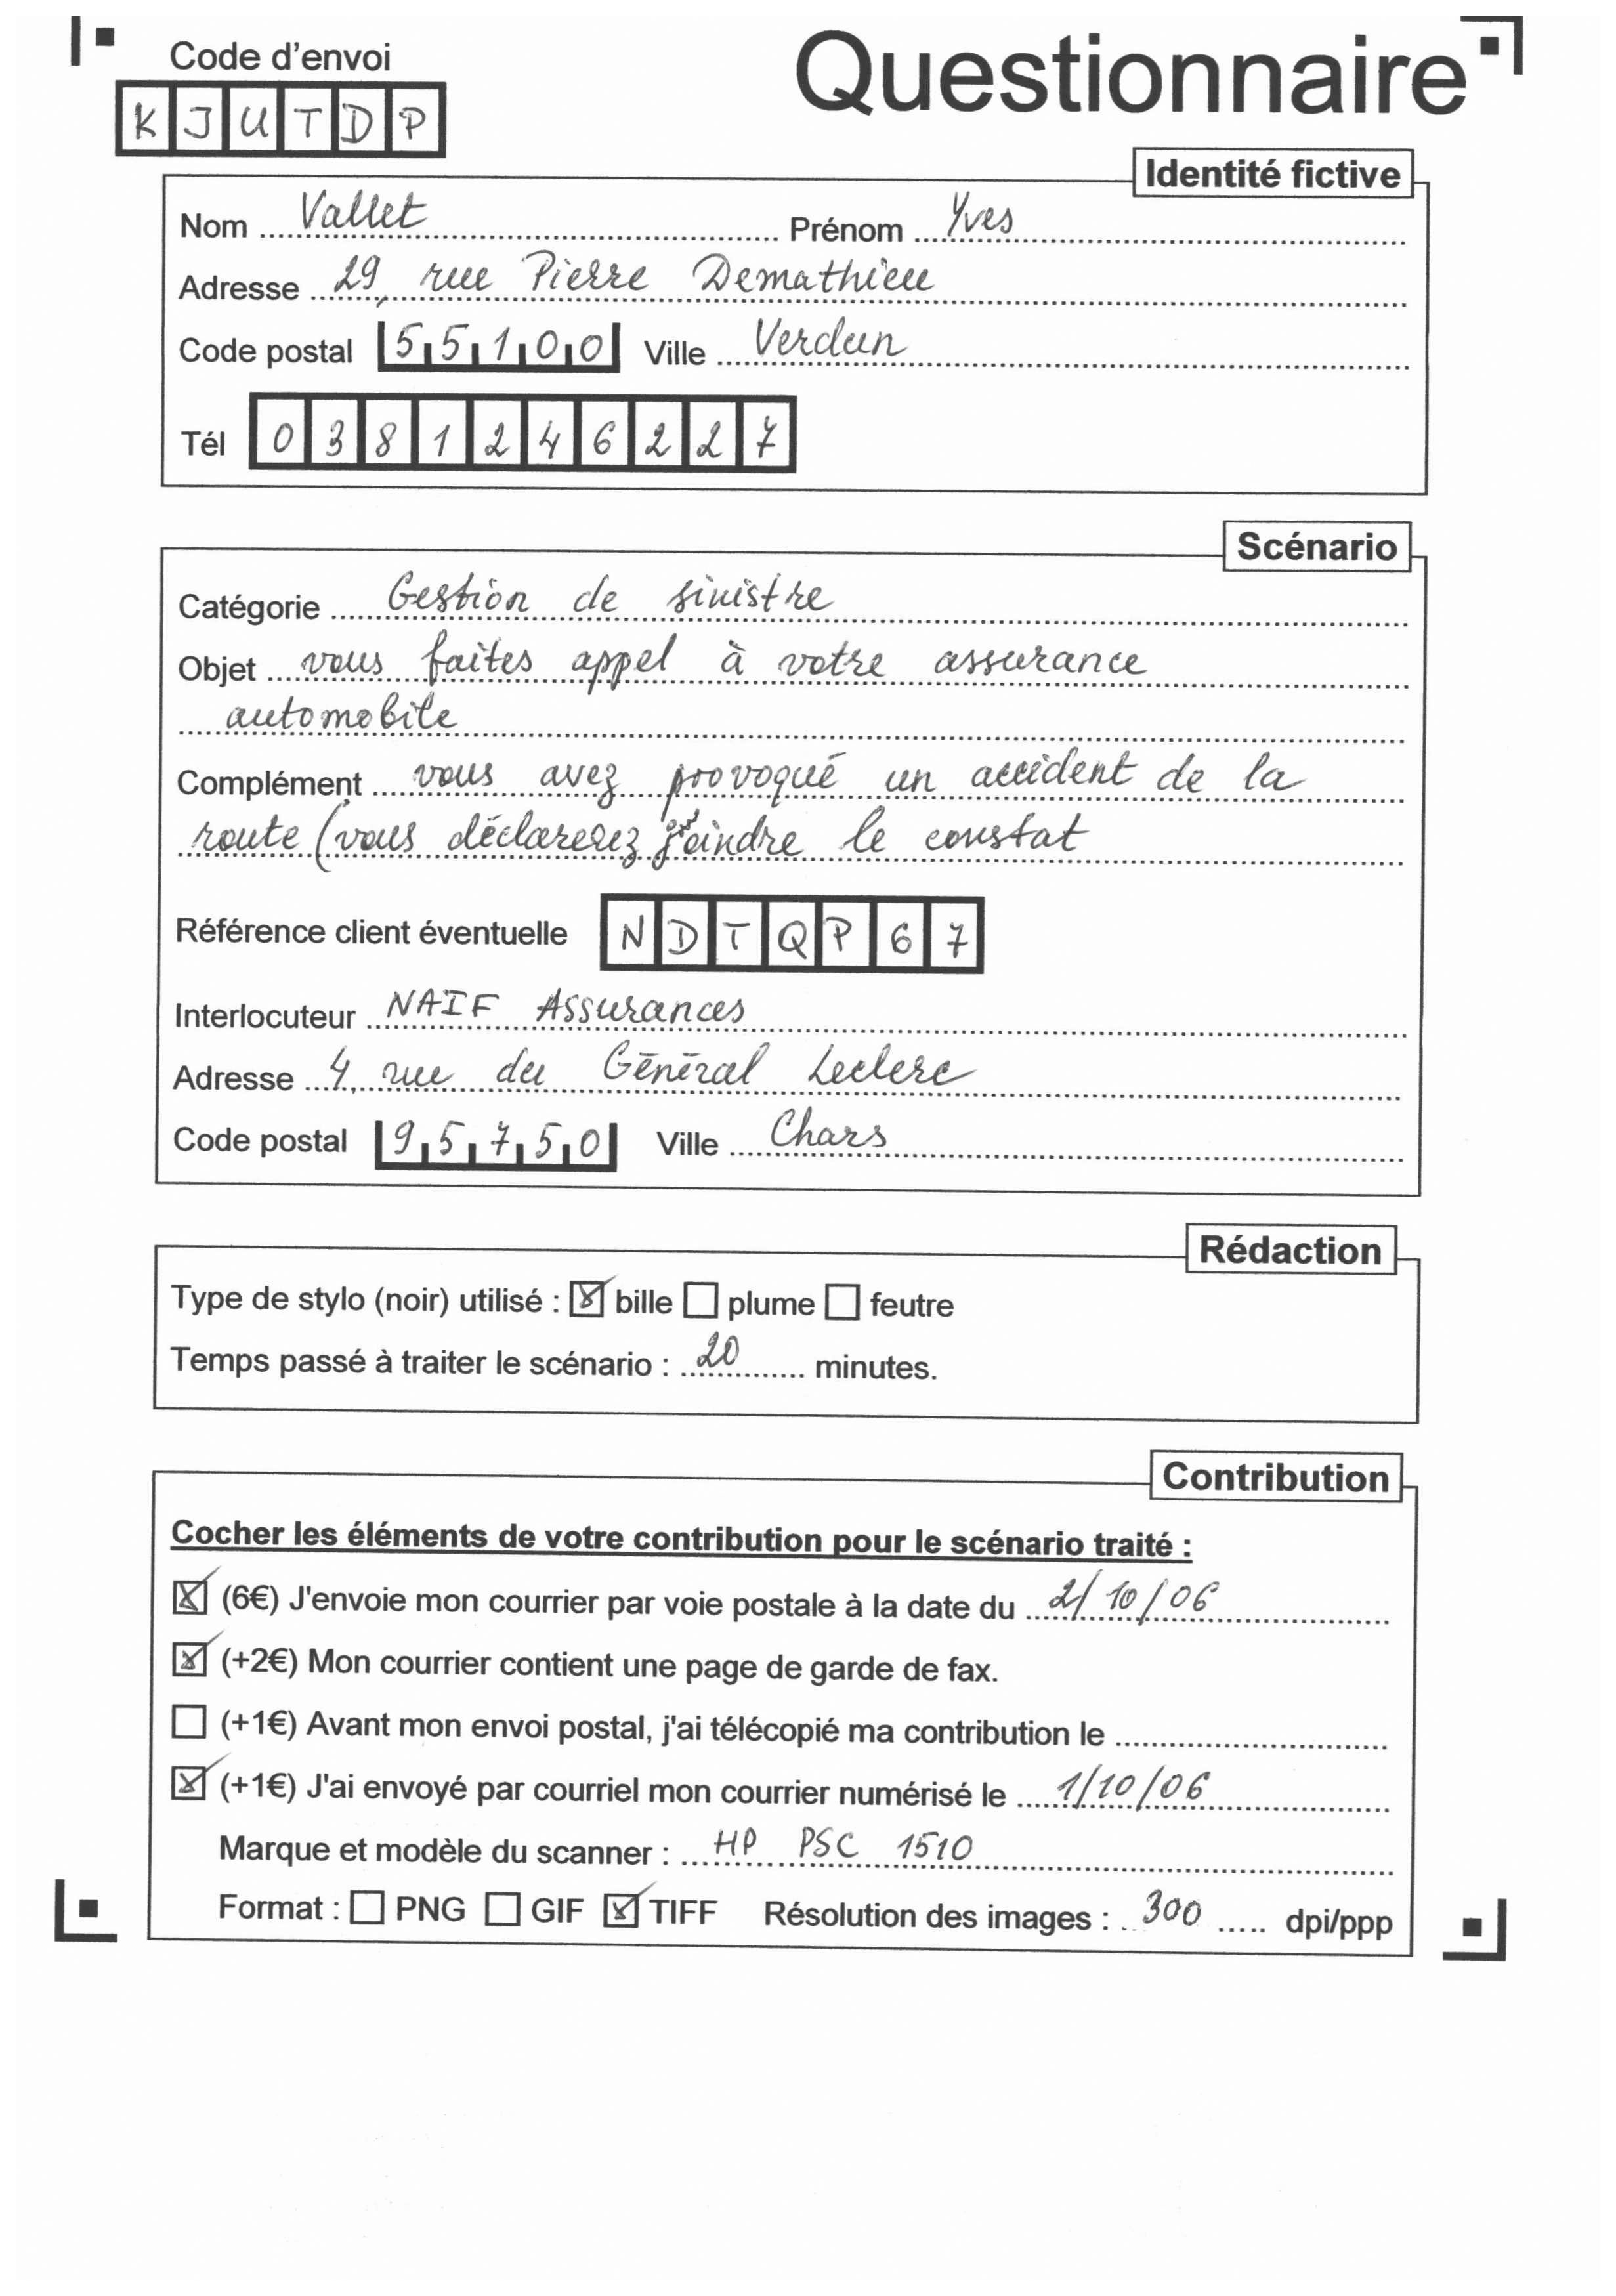 Code d'envoi
KJUTDP
Questionnaire
Identité fictive
Nom Vallet Prénom Yves
Adresse 29, rue Pierre Demathieu
Code postal 55100 Ville Verdun
Tél 0381246227
Scénario
Catégorie Gestion de sinistre
Objet vous faites appel à votre assurance
automobile
Complément vous avez provoqué un accident de la
route (vous déclarerez joindre le constat
Référence client éventuelle NDTQP67
Interlocuteur NAIF Assurances
Adresse 4, rue du Général Leclerc
Code postal 95750 Ville Chars
Rédaction
Type de stylo (noir) utilisé : bille plume feutre
Temps passé à traiter le scénario : 20 minutes.
Contribution
Cocher les éléments de votre contribution pour le scénario traité :
(6€) J'envoie mon courrier par voie postale à la date du 2/10/06
(+2€) Mon courrier contient une page de garde de fax.
(+1€) Avant mon envoi postal, j'ai télécopié ma contribution le
(+1€) J'ai envoyé par courriel mon courrier numérisé le 1/10/06
Marque et modèle du scanner : HP PSC 1510
Format : PNG GIF TIFF Résolution des images : 300 dpi/ppp